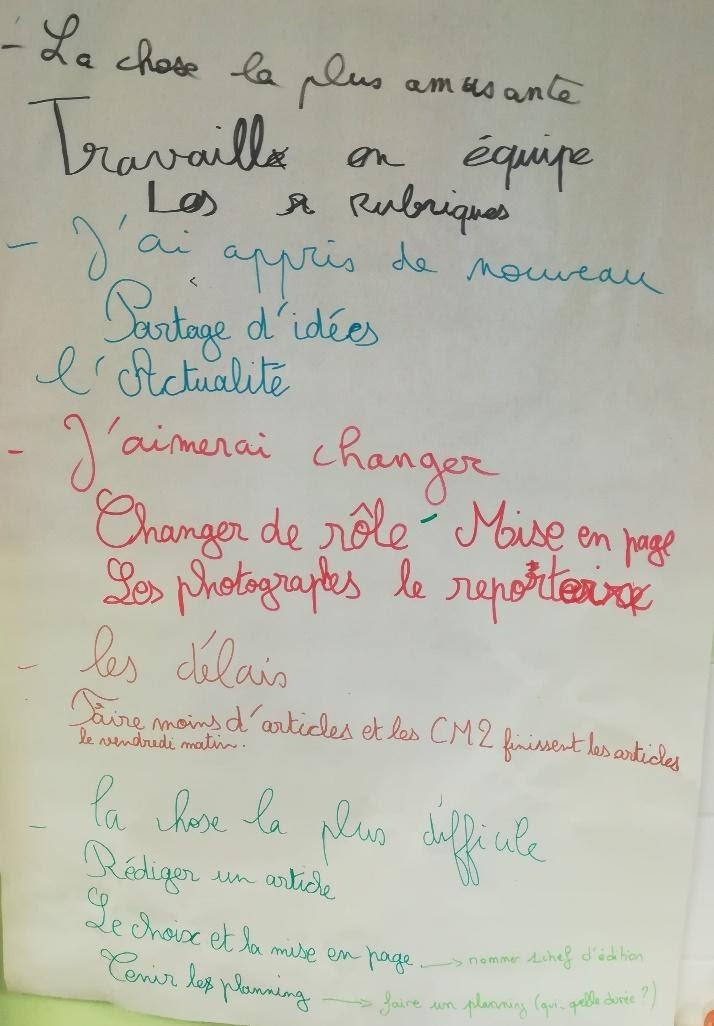 - La chose la plus amusante
Travaill en équipe
Les rubriques
- J'ai appris de nouveau
Partage d'idées
l'Actualité
- J'aimerai changer
Changer de rôle - Mise en page
Les photographes le
- les délais
Faire moins d'articles et les CM2 finissent les articles
le vendredi matin.
- la chose la plus difficile
Rédiger un article
Le choix et la mise en page → nommer 1 chef d'édition
Tenir les planning → faire un planning (qui, quelle durée ?)